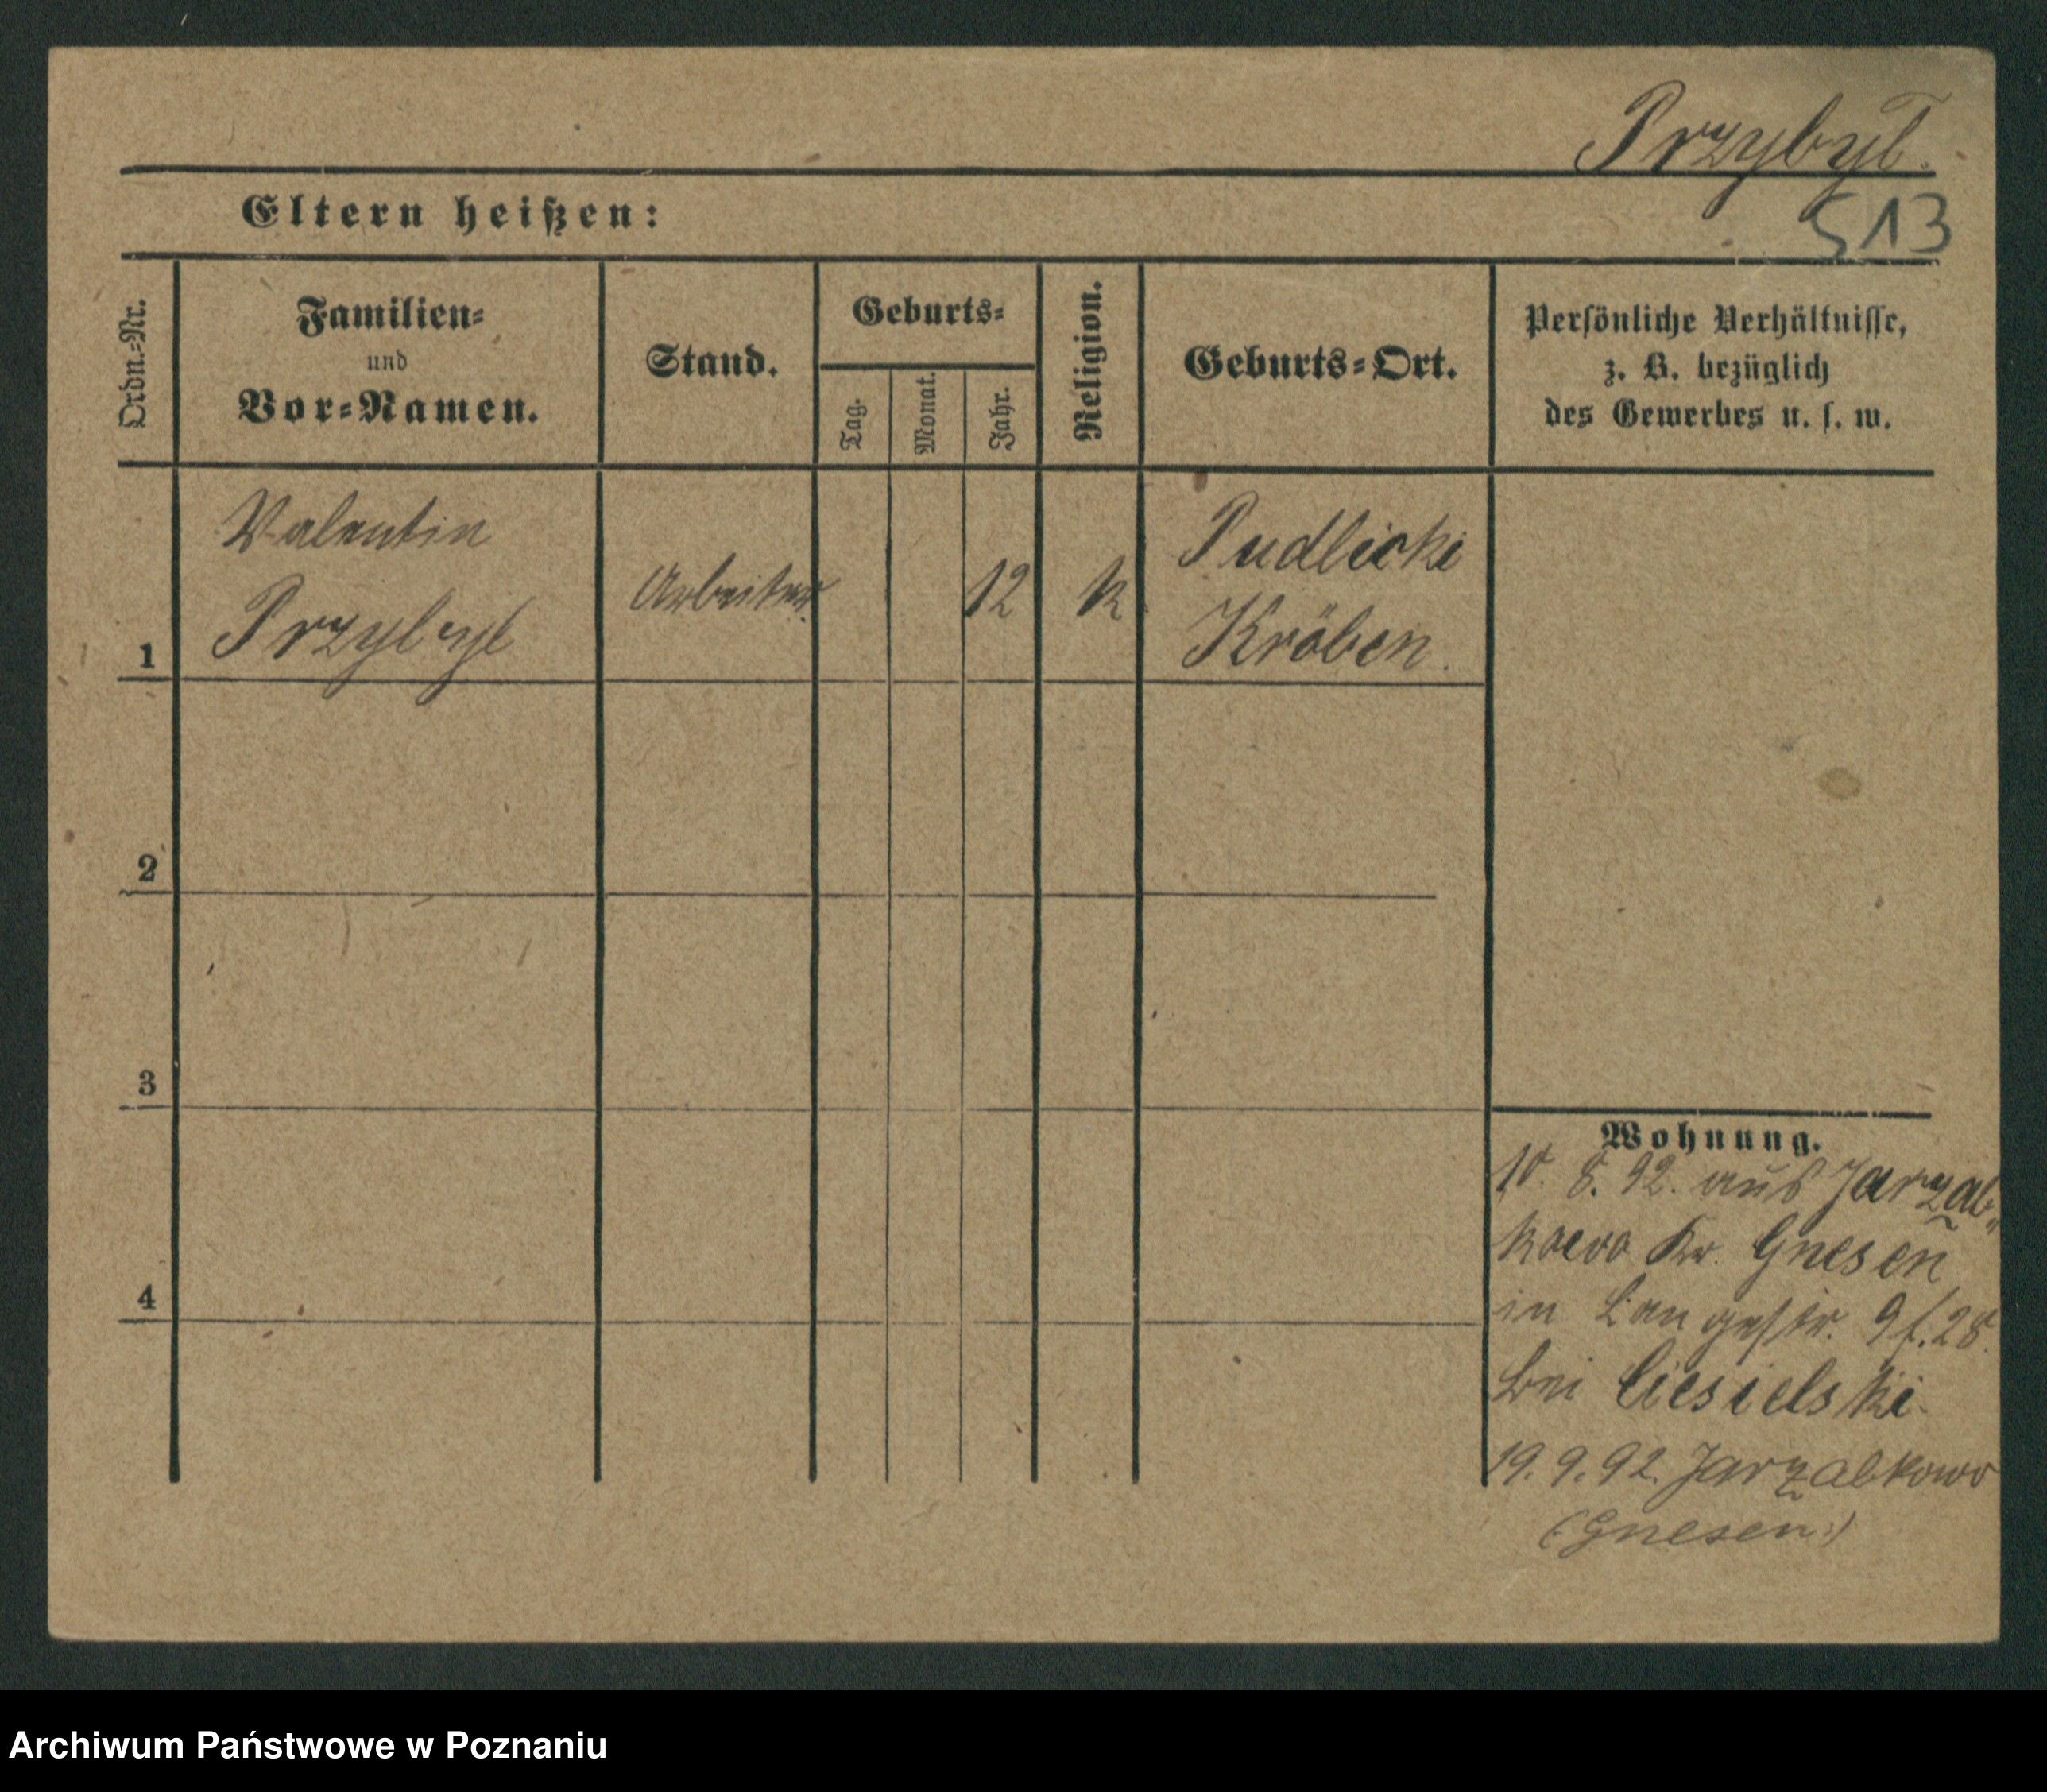 Przybył.
513
Eltern heißen:
Ordn.-Nr.
Familien-
und
Vor-Namen.
Stand.
Geburts-
Tag.
Monat.
Jahr.
Religion.
Geburts-Ort.
Persönliche Verhältnisse,
z. B. bezüglich
des Gewerbes u. s. w.
Valentin
Przybył
Arbeiter
12
k
Pudlicki
Kröben.
1
2
3
4
Wohnung.
10. 8. 92. aus Jarząb-
kowo Kr. Gnesen
in Langestr. 9 f. 28.
bei Ciesielski.
19. 9. 92. Jarząbkowo
(Gnesen)
Archiwum Państwowe w Poznaniu